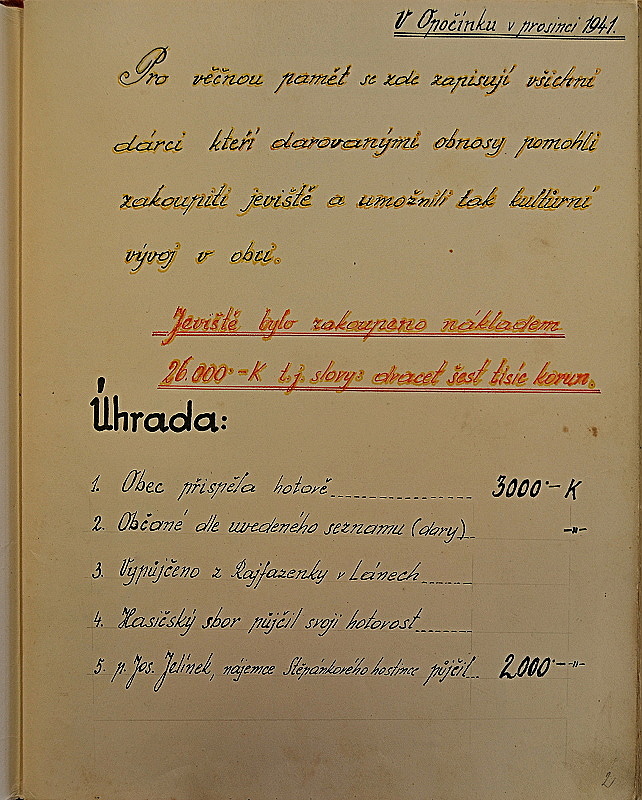 V Opočínku v prosinci 1941.
Pro věčnou paměť se zde zapisují všichni
dárci kteří darovanými obnosy pomohli
zakoupiti jeviště a umožnili tak kulturní
vývoj v obci.
Jeviště bylo zakoupeno nákladem
26.000·-K t.j. slovy: dvacet šest tisíc korun.
Úhrada:
1. Obec přispěla hotově 3000·- K
2. Občané dle uvedeného seznamu (dary) -"-
3. Vypůjčeno z Rajfazenky v Lánech
4. Hasičský sbor půjčil svoji hotovost
5. p. Jos. Jelínek, nájemce Štěpánkového hostince půjčil 2.000·- -"-
2